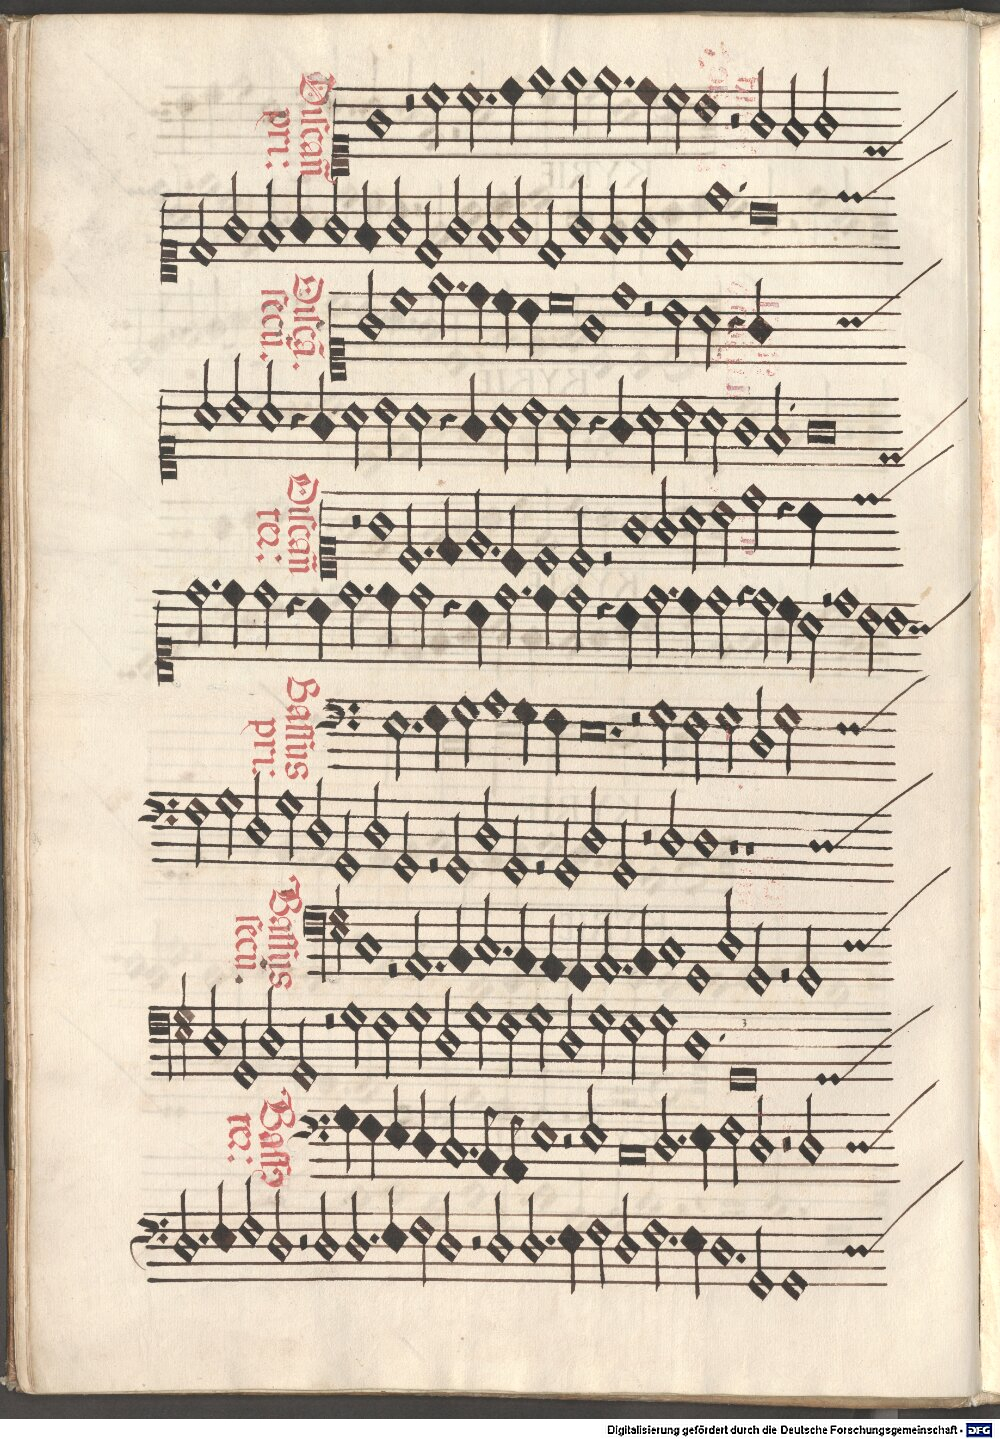 Discañ
pri:
Discã.
secu.
Discañ
te:
Bassus
pri:
Bassus
secu.
Bass9
te:
3
KYRIE
KYRIE
Digitalisierung gefördert durch die Deutsche Forschungsgemeinschaft - DFG